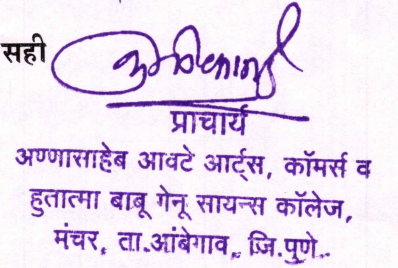 सही
प्राचार्य
अण्णासाहेब आवटे आर्ट्स, कॉमर्स व
हुतात्मा बाबू गेनू सायन्स कॉलेज,
मंचर, ता.आंबेगाव, जि.पुणे.